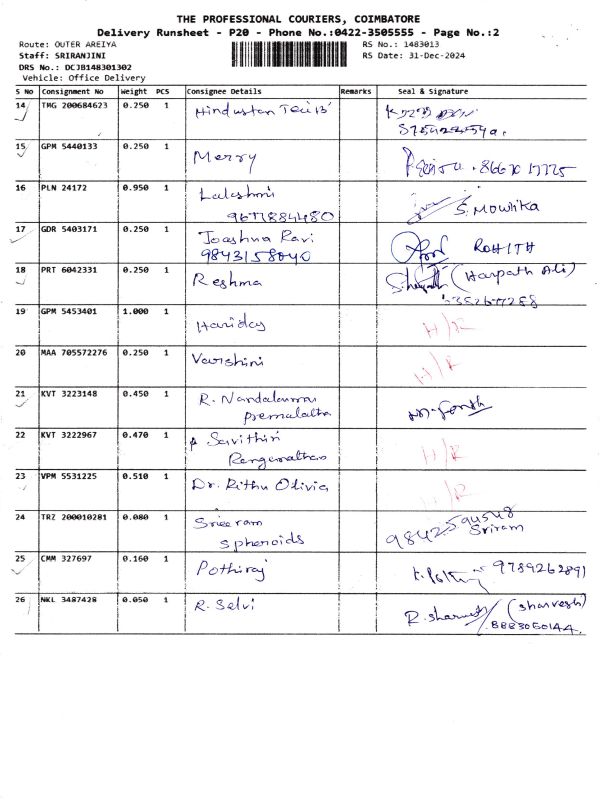 THE PROFESSIONAL COURIERS, COIMBATORE
Delivery Runsheet - P20 - Phone No.:0422-3505555 - Page No.:2
Route: OUTER AREIYA
RS No.: 1483013
Staff: SRIRANJINI
RS Date: 31-Dec-2024
DRS No.: DCJB148301302
Vehicle: Office Delivery
S No Consignment No Weight PCS Consignee Details Remarks Seal & Signature
14 TMG 200684623 0.250 1 Hindustan
15 GPM 5440133 0.250 1 Merry
16 PLN 24172 0.950 1 Lakshmi
9677884480
S. Mowlika
17 GDR 5403171 0.250 1 Joashna Ravi
9843158040
ROHITH
18 PRT 6042331 0.250 1 Reshma
(Harpath Ali)
19 GPM 5453401 1.000 1 Haridas
H/R
20 MAA 705572276 0.250 1 Varshini
H/R
21 KVT 3223148 0.450 1 R. Nandakumar
premalatha
22 KVT 3222967 0.470 1 Savithiri
Ranganathan
H/R
23 VPM 5531225 0.510 1 Dr. Rithu Olivia
H/R
24 TRZ 200010281 0.080 1 Sreeram
spheroids
9842594548
Sriram
25 CMM 327697 0.160 1 Pothiraj
9789262891
26 NKL 3487428 0.050 1 R. Selvi
(Sharvesh)
8883050144